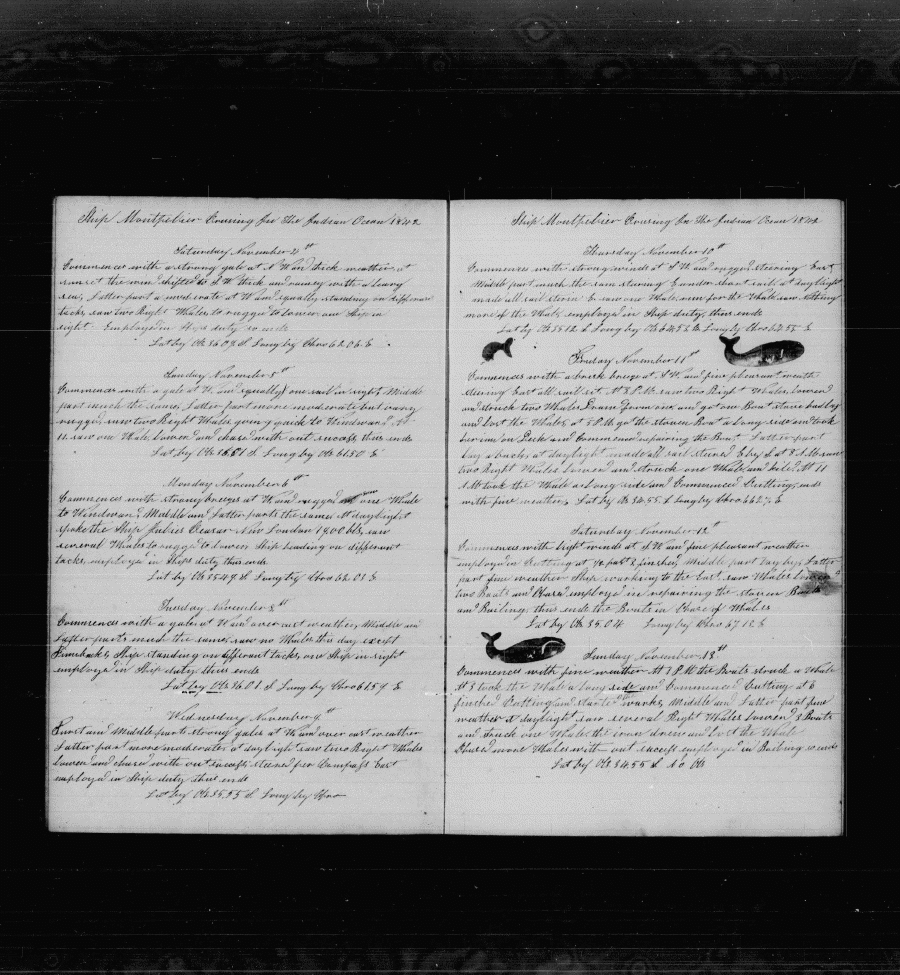 Ship Montpelier Crusing In The Indian Ocean 1842
Saturday November
Commences with a strong gale at N W and thick weather at
sunset the wind shifted to S W thick and rainey with a heavy
sea, Latter part a moderate at W and squally standing on different
tacks saw two Right Whales to rugged to lower one Ship in
sight Employed in Ships duty so ends
Lat by Ob 36.07 S Long by Chro 62.06 E
Sunday November 5th
Commences with a gale at W and squally one sail in sight Middle
part much the same, Latter part more moderate but very
rugged saw two Right Whales going quick to Windward At
11 saw one Whale Lowerd and chased with out success thus ends
Lat by Ob 36.51 S Long by Ob 61.50 E
Monday November 6th
Commences with strong breezes at W and rugged saw one Whale
to Windward, Middle and Latter parts the same At daylight
spoke the Ship Julies Ceasar New London 1900 bbls, saw
several Whales to rugged to Lower Ship heading on different
tacks employed in Ships duty thus ends
Lat by Ob 35.49 S Long by Chro 62.01 E
Tuesday November 8th
Commences with a gale at W and over cast weather, Middle and
Latter parts much the same, saw no Whales this day except
Finnbacks, Ship standing on different tacks, one Ship in sight
employed in Ship duty thus ends
Lat by Ob 36.01 S Long by Chro 61.59 E
Wednesday November 9th
First and Middle part strong gales at W and over cast weather
Latter part more moderate at daylight saw two Right Whales
Lowerd and chased with out success, steered per Compass East
employed in Ship duty thus ends
Lat by Ob 35.55 S Long by Chro
Ship Montpelier Crusing In The Indian Ocean 1842
Thursday November 10th
Commences with strong winds at S W and rugged steering East
Middle part much the same steering E under short sail, at daylight
made all sail steerd E saw one Whale, run for the Whale saw nothing
more of the Whale employed in Ship duty, thus ends
Lat by Ob 35.12 S Long by Ob 64.52 E Long by Chro 64.55 E
Friday November 11th
Commences with a brisk breeze at S W and fine pleasant weath
steering East all sail set, At 3 P.M. saw two Right Whales, Lowerd
and struck two Whales Drawn from one and got one Boat stove bad by
and Lost the Whales, at 5 P.M. got the stoven Boat a Long side and took
her in on Deck and Commenced repairing the Boat Latter part
lay aback, at daylight made all sail steerd E by S at 8 A.M. saw
two Right Whales Lowerd and struck one Whale and kiled At 11
A.M. took the Whale a Long side and Commenced Cutting, ends
with fine weather, Lat by Ob 34.55 S Long by Chro 66.27 E
Saturday November 12th
Commences with Light winds at S W and fine pleasant weather
employed in Cutting at ½ past 2 finished, Middle part lay by, Latter
part fine weather Ship working to the East, saw Whales Lowerd
two Boats and Chased employed in repairing the stoven Boat
and Boiling, thus ends the Boats in Chase of Whales
Lat by Ob 35.04 Long by Chro 67.12 E
Sunday November 13th
Commences with fine weather At 1 P.M. the Boats struck a Whale
At 3 took the Whale a Long side and Commenced Cutting at 6
finished Cutting and started the works, Middle and Latter part fine
weather at daylight saw several Right Whales Lowerd 3 Boats
and struck one Whale, the iron drew and Lost the Whale
Chased more Whales with out success employed in Boiling so ends
Lat by Ob 34.55 S No Ob